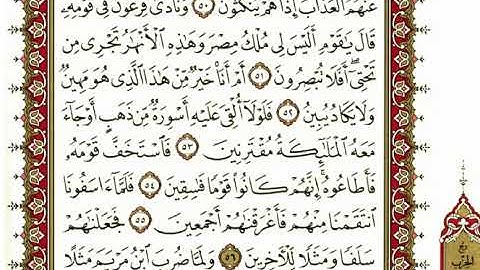 عَنْهُمُ ٱلْعَذَابَ إِذَا هُمْ يَنكُثُونَ ٥٠ وَنَادَىٰ فِرْعَوْنُ فِي قَوْمِهِۦ
قَالَ يَٰقَوْمِ أَلَيْسَ لِي مُلْكُ مِصْرَ وَهَٰذِهِ ٱلْأَنْهَٰرُ تَجْرِي مِن
تَحْتِيٓ أَفَلَا تُبْصِرُونَ ٥١ أَمْ أَنَا۠ خَيْرٌ مِّنْ هَٰذَا ٱلَّذِي هُوَ مَهِينٌ
وَلَا يَكَادُ يُبِينُ ٥٢ فَلَوْلَآ أُلْقِيَ عَلَيْهِ أَسْوِرَةٌ مِّن ذَهَبٍ أَوْ جَآءَ
مَعَهُ ٱلْمَلَٰٓئِكَةُ مُقْتَرِنِينَ ٥٣ فَٱسْتَخَفَّ قَوْمَهُۥ
فَأَطَاعُوهُۚ إِنَّهُمْ كَانُوا۟ قَوْمًا فَٰسِقِينَ ٥٤ فَلَمَّآ ءَاسَفُونَا
ٱنتَقَمْنَا مِنْهُمْ فَأَغْرَقْنَٰهُمْ أَجْمَعِينَ ٥٥ فَجَعَلْنَٰهُمْ
سَلَفًا وَمَثَلًا لِّلْءَاخِرِينَ ٥٦ وَلَمَّا ضُرِبَ ٱبْنُ مَرْيَمَ مَثَلًا
ربع
الحزب